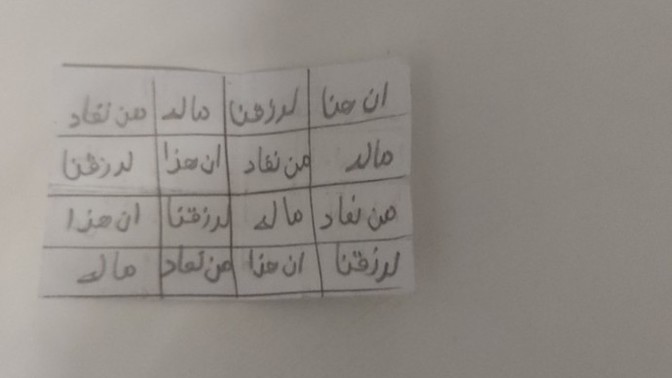 ان هذا لرزقنا ماله من نفاد
ماله من نفاد ان هذا لرزقنا
من نفاد ماله لرزقنا ان هذا
لرزقنا ان هذا من نفاد ماله